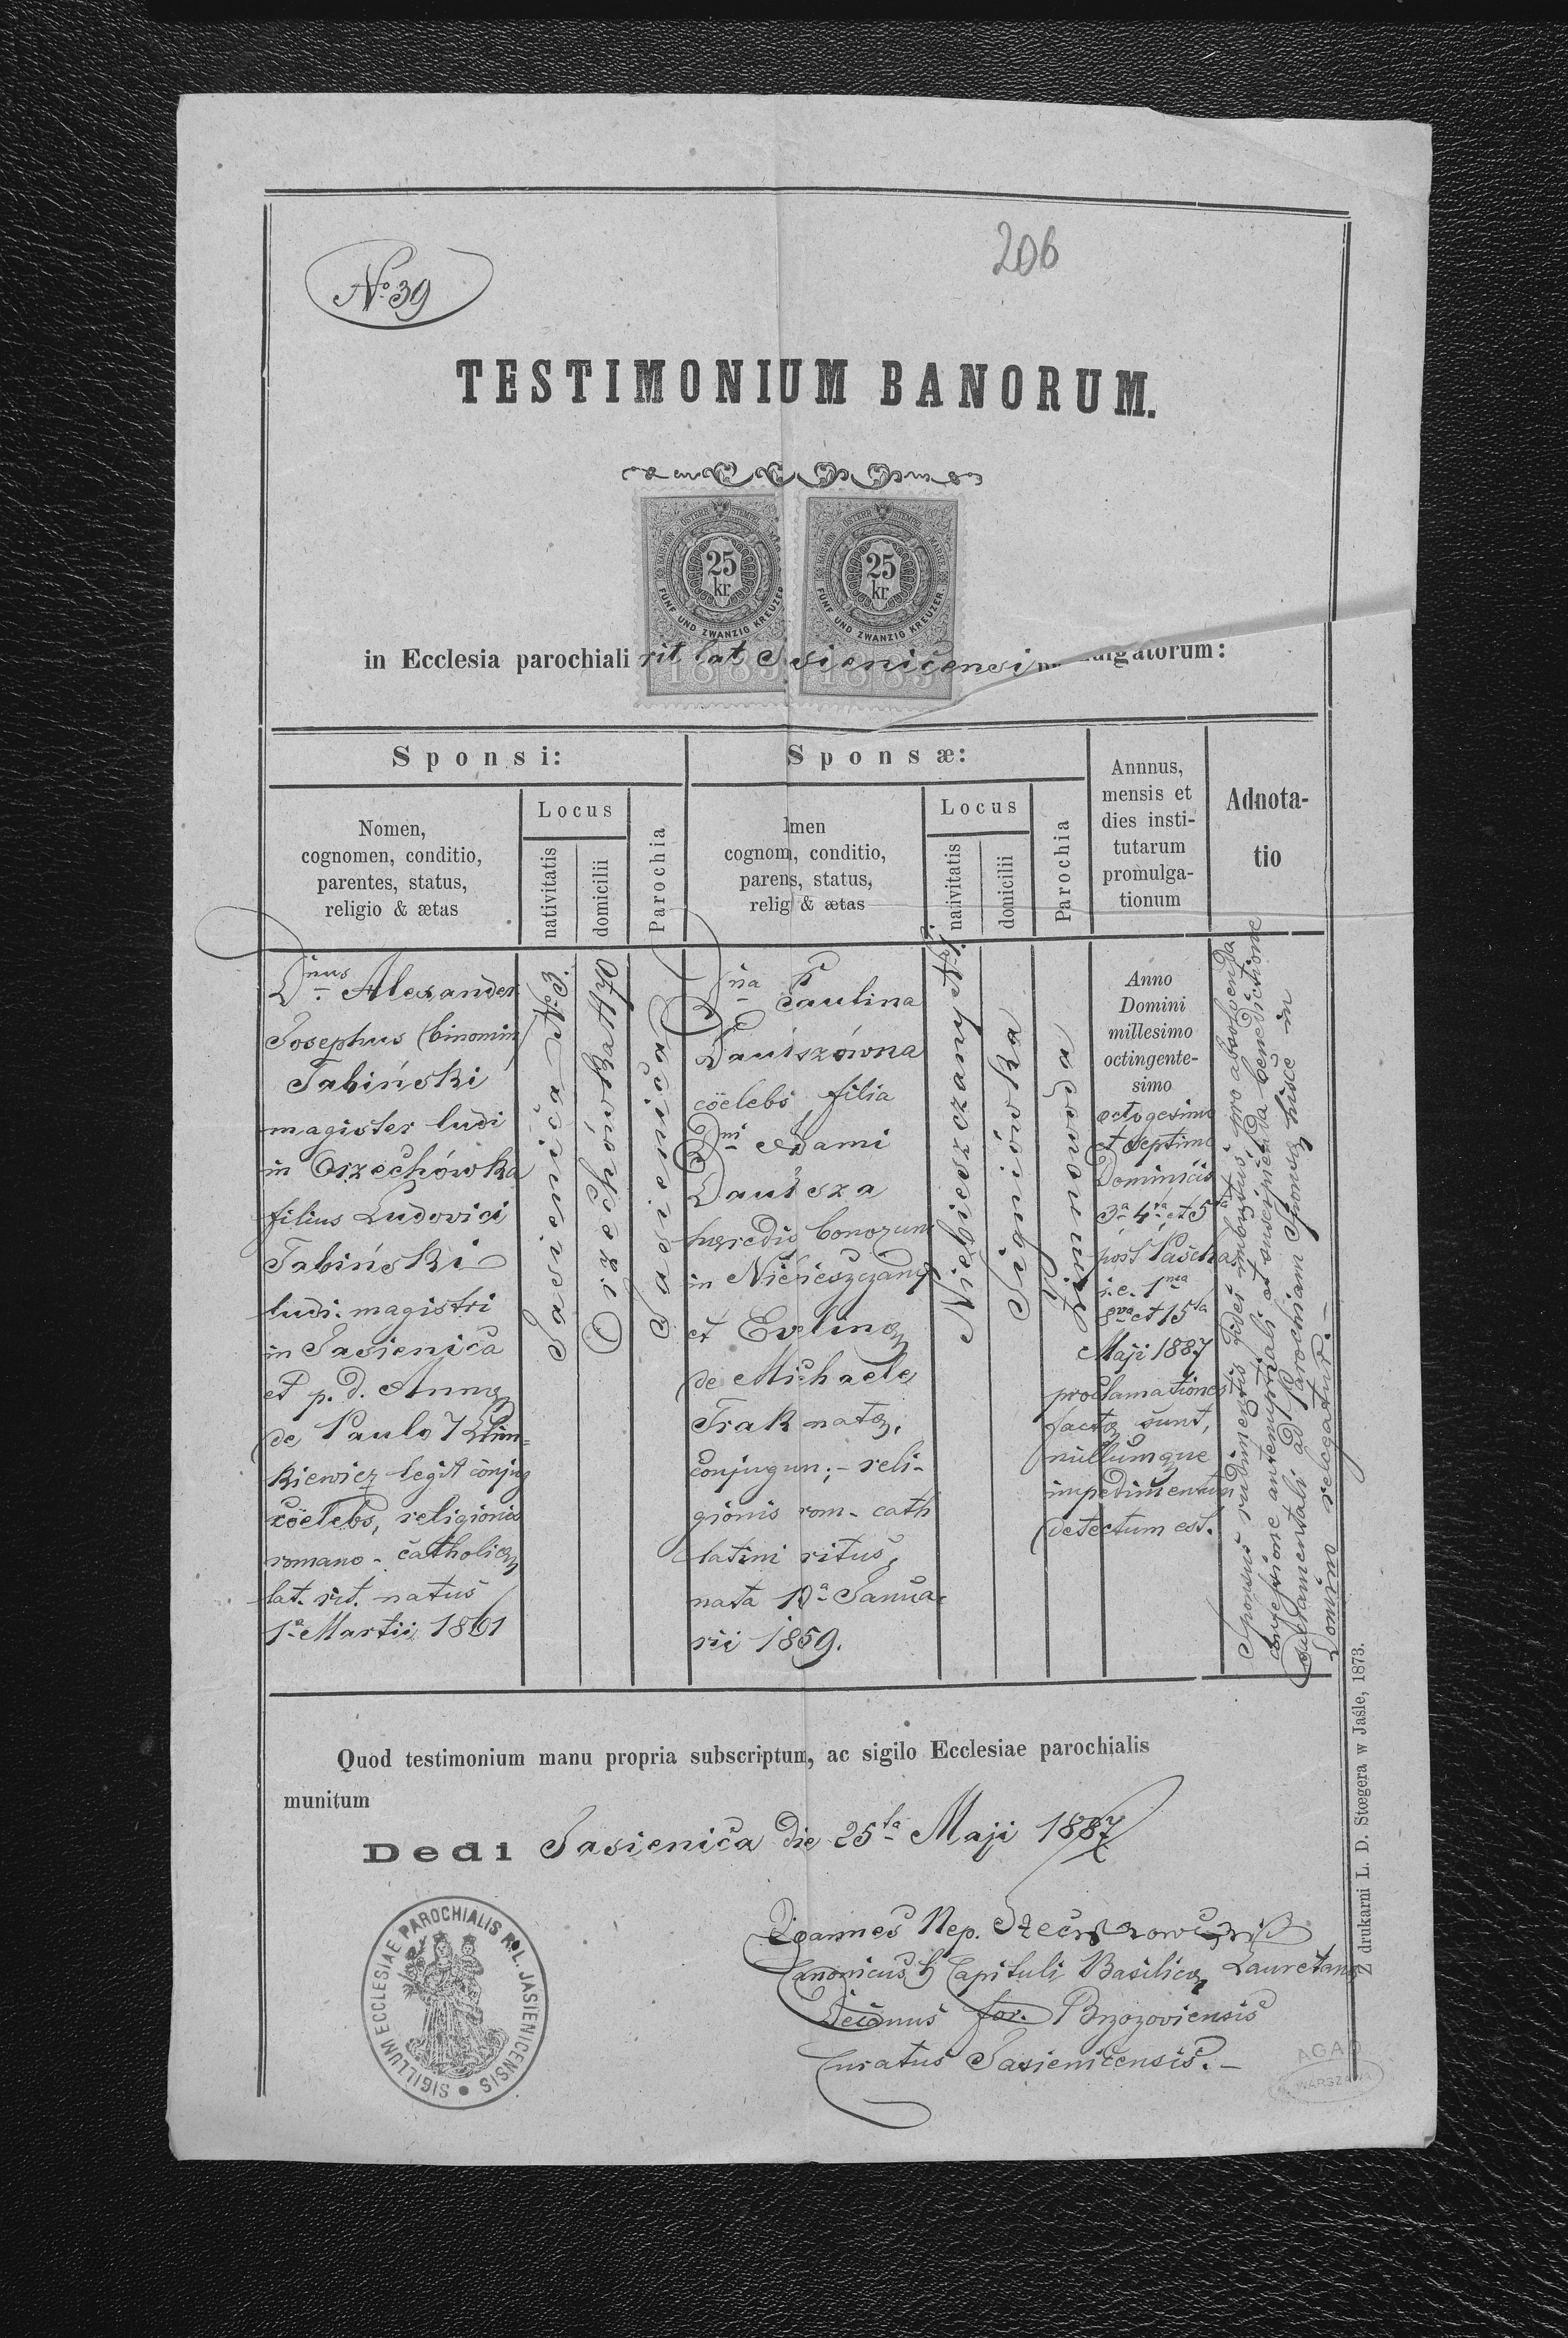 206
No 39
TESTIMONIUM BANORUM.
ÖSTERR. STEMPEL MARKE
25
kr
FÜNF UND ZWANZIG KREUZER
1883
ÖSTERR. STEMPEL MARKE
25
kr
FÜNF UND ZWANZIG KREUZER
1883
in Ecclesia parochiali rit lat sienicensi ulgatorum:
Sponsi:
Nomen,
cognomen, conditio,
parentes, status,
religio & ætas
Locus
nativitatis
domicilii
Parochia
Sponsæ:
men
cognom, conditio,
parens, status,
relig & ætas
Locus
nativitatis
domicilii
Parochia
Annnus,
mensis et
dies insti-
tutarum
promulga-
tionum
Adnota-
tio
Dnus Alexander
Josephus (binomin)
Tabiński
magister ludi
in Orzechówka
filius Ludovici
Tabiński
ludi magistri
in Jasienica
et p. d. Annæ
de Paulo Klim-
kiewicz legit conjug
cöelebs, religionis
romano-catholicæ
lat. rit. natus
1a Martii 1861
Jasienica
Orzechówka
Jasienica
Dna Paulina
Dauiszówna
cöelebs filia
Dni Adami
Dauisza
hæredis bonorum
in Niebieszczany
et Evlinæ
de Michaele
Trak natæ,
conjugun; - reli-
gionis rom-cath
latini ritus,
nata 10a Janua-
rii 1859.
Niebieszczany
Signiówka
Zimnowoda
Anno
Domini
millesimo
octingente-
simo
octogesimo
et septimo
Dominicis
3a 4ta et 5ta
post Pascha
i.e. 1ma
8va et 15ta
Maji 1887
proclamationes
factæ sunt,
nullumque
impedimentum
detectum est.
Sponsus rudimentis fidei imbutus, pro absolvenda
confessione antenuptiali et suscipienda benedictione
sacramentali ad Parochiam Sponsæ hisce in
Domino relegatur. -
Quod testimonium manu propria subscriptum, ac sigilo Ecclesiae parochialis
munitum
Dedi Jasienica die 25ta Maji 1887
Joannes Nep.
Canonicus h Capituli Basilicæ Lauretanæ
Decanus for. Brzozoviensis
Curatus Jasienicensis. -
SIGILLUM ECCLESIAE PAROCHIALIS R. L. JASIENICENSIS
Z drukarni L. D. Stœgera w Jaśle, 1873.
AGAD
WARSZAWA